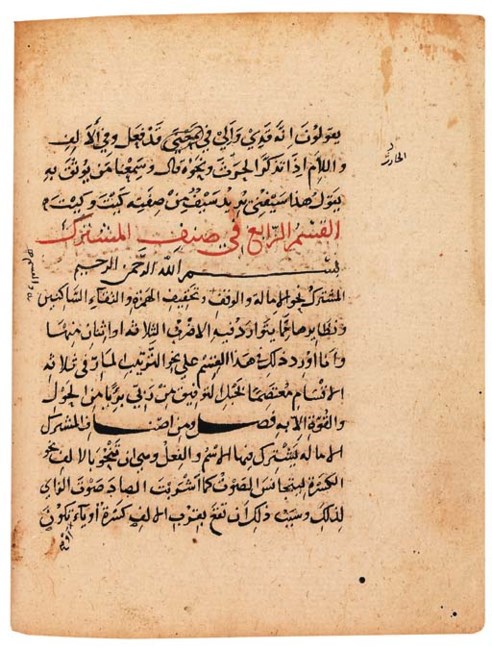 يقولون انه قدي والي في قد فعل وفي الالف
واللام اذا تذكر الحرث ونحوه قال وسمعنا من يوثق به
يقول هذا سيفني يريد سيف من صفته كيت وكيت
القسم الرابع في صنف المشترك
بسم الله الرحمن الرحيم
المشترك نحو الامالة والوقف وتخفيف الهمزة والتقاء الساكنين
ونظايرها مما يتوارد فيه الاضرب الثلاثه او اثنان منها
وانا اورد ذلك هذا القسم على نحو الترتيب المار في ثلاثه
الاقسام معتصما بحبل التوفيق من ربي بريا من الحول
والقوة الا به فصل ومن اصناف المشترك
الاماله يشترك فيها الاسم والفعل وهي ان تنحو بالالف نحو
الكسرة ليتجانس الصوت كما اشربت الصاد صوت الزاي
لذلك وسبب ذلك ان تقع بقرب الالف كسرة او ياء او تكون